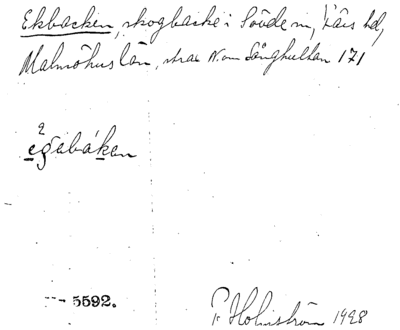 Ekbacken, skogbacke i Sövde sn, Färs hd,
Malmöhus län, strax N om Sånghultan 171
2
ęgəbákən
5592.
P. Holmström 1928